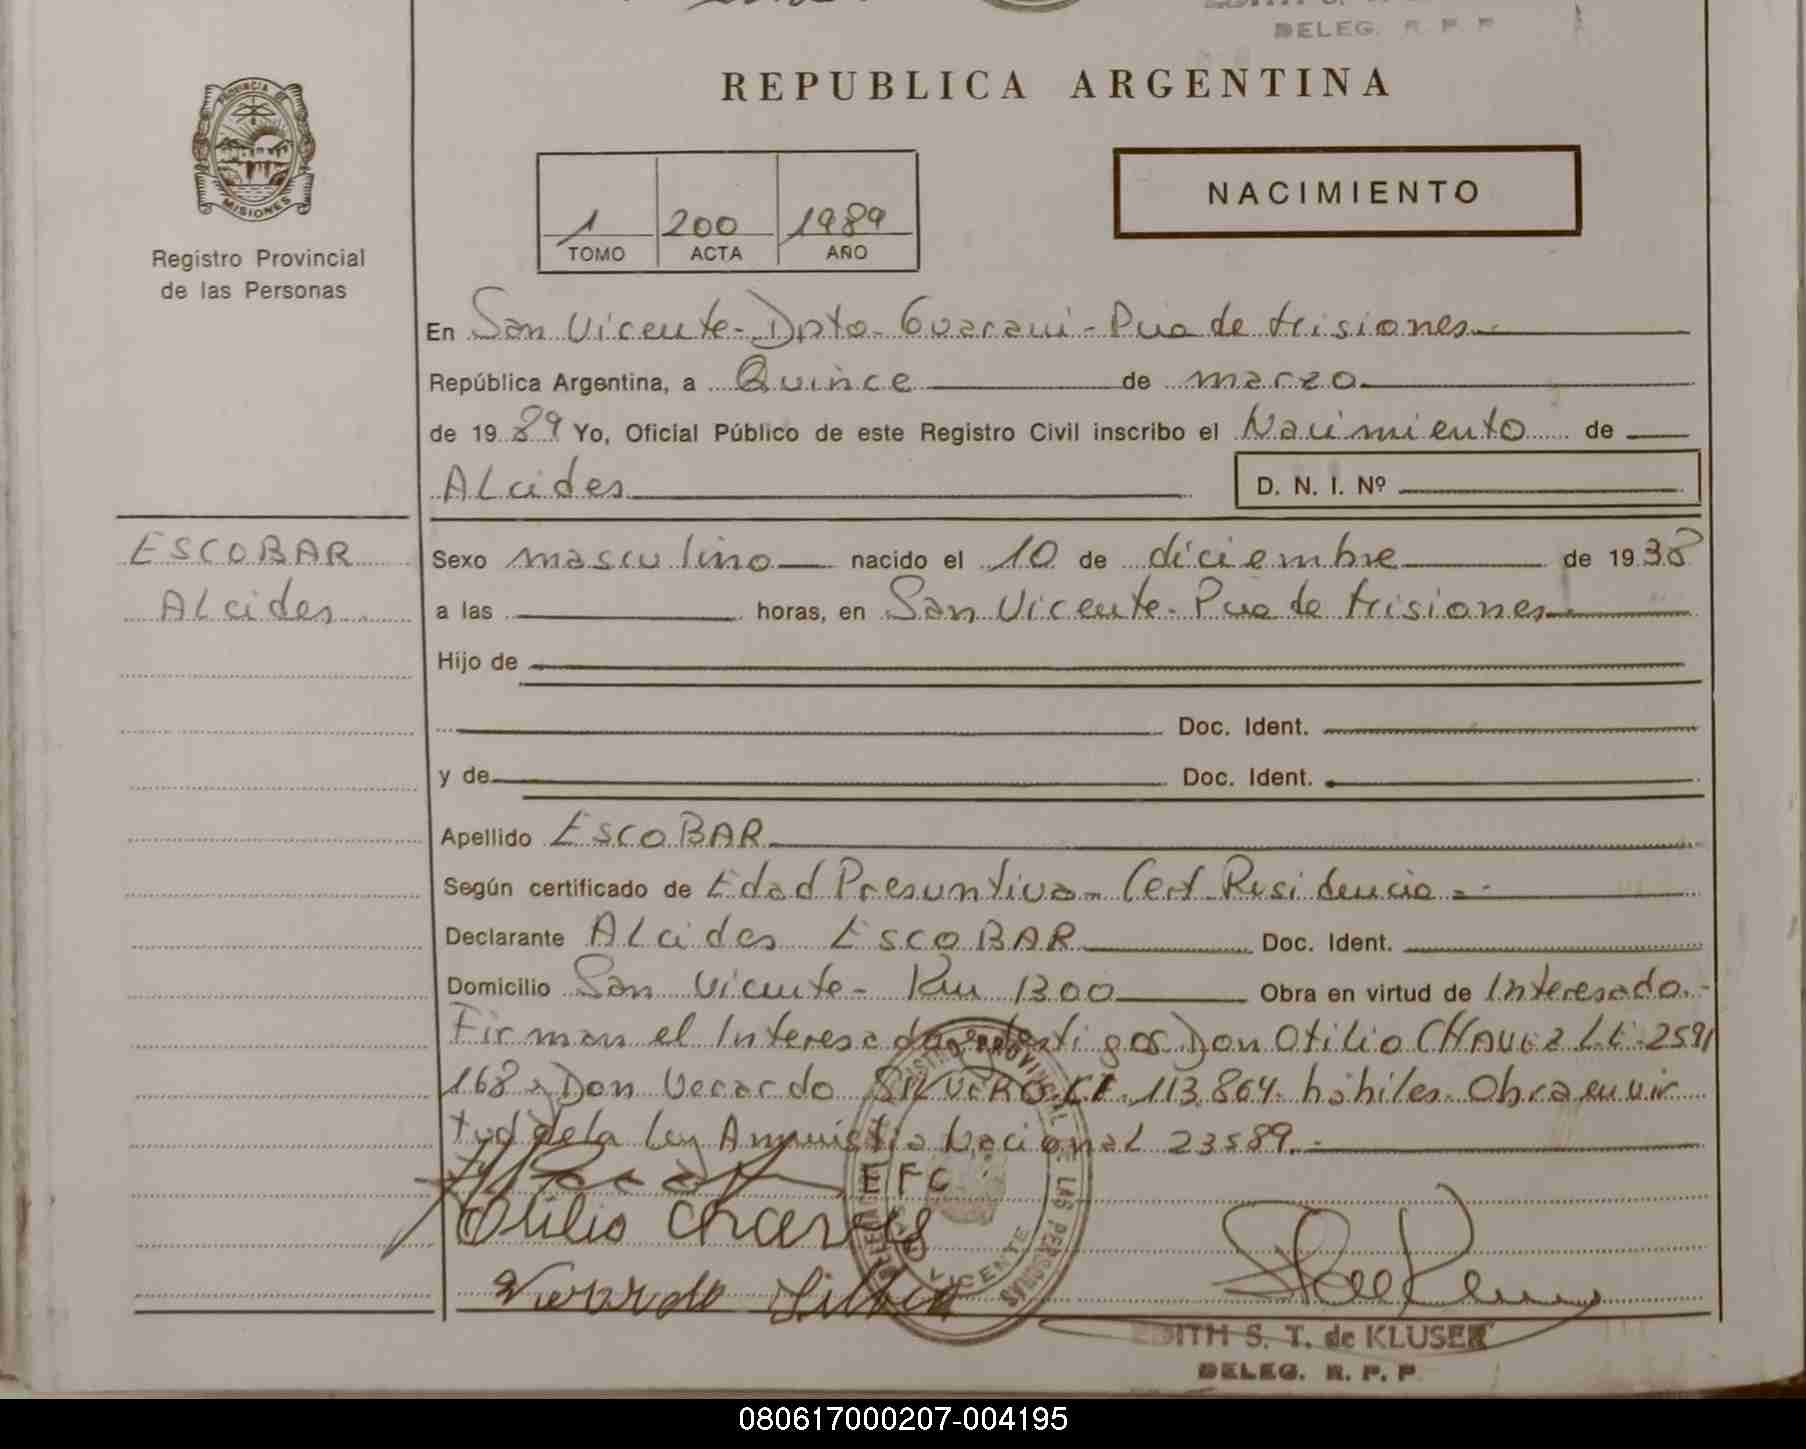 DELEG. R. P. P
REPUBLICA ARGENTINA
PROVINCIA DE
MISIONES
Registro Provincial
de las Personas
1 200 1989
TOMO ACTA AÑO
NACIMIENTO
En San Vicente - Dpto - Guarani - Pua de Misiones
República Argentina, a Quince de marzo
de 1989 Yo, Oficial Público de este Registro Civil inscribo el Nacimiento de
ALcides
D. N. I. Nº
ESCOBAR
ALcides
Sexo masculino nacido el 10 de diciembre de 1938
a las horas, en San Vicente - Pua de Misiones
Hijo de
Doc. Ident.
y de Doc. Ident.
Apellido ESCOBAR
Según certificado de Edad Presuntiva - Cert Residencia
Declarante ALcides ESCOBAR Doc. Ident.
Domicilio San Vicente - Km 1300 Obra en virtud de Interesado.-
Firman el Interesado testigos Don Otilio CHAVEZ L.E. 2591
168 Don Verardo SILVERO C.I. 113.864. hábiles. Obra en vir
tud de la Ley Amnistia Nacional 23589.-
EFC
Otilio Chavez
Verardo
VICENTE
LAS PERSONAS
EDITH S. T. de KLUSER
DELEG. R. P. P
080617000207-004195